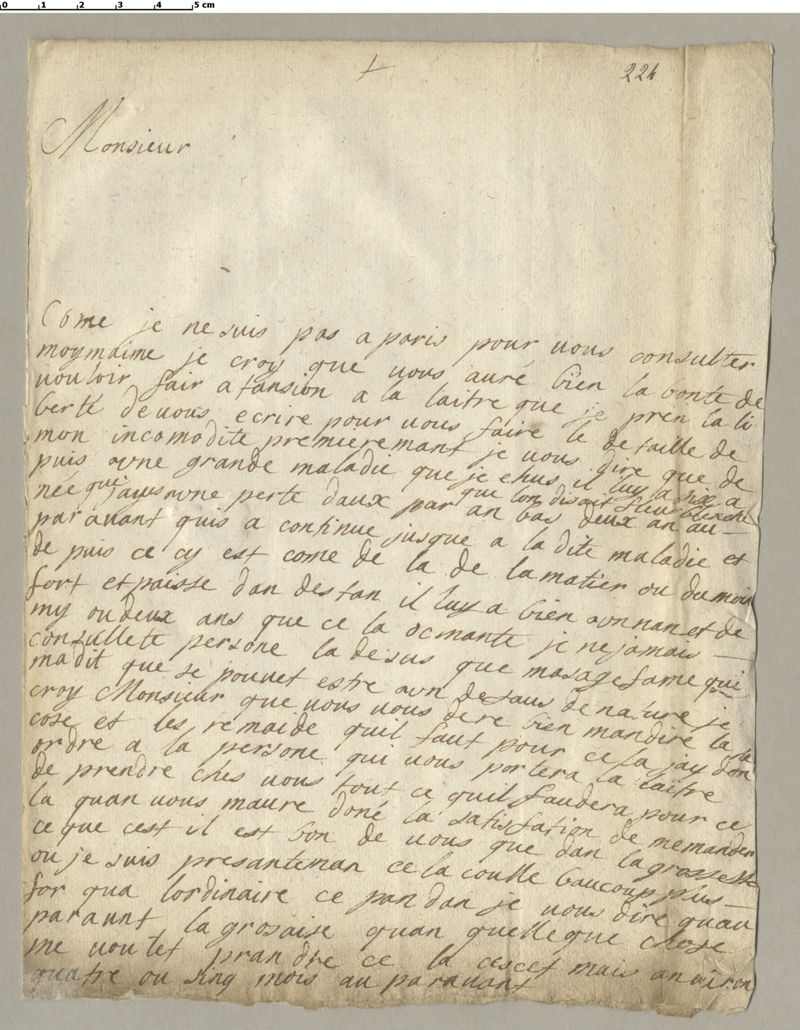 0 1 2 3 4 5 cm
224
Monsieur
Come je ne suis pas a paris pour vous consulter
moymaime je croy que vous auré bien la bonte de
vouloir fair atansion a la laitre que je pren la li
berté de vous ecrire pour vous faire le detaille de
mon incomodite premieremant je vous dire que de
puis vne grande maladie que je ehus il luy a six a
née que jauis vne perte daux par an bas deux an au
que lon disait fleur blanche
paravant quis a continue jusque a la dite maladie et
de puis ce cy est come de la de la matier ou du moin
fort et paisse dan des tan il luy a bien vn nan et de
my ou deux ans que ce la ocmante je ne jamais
consulleté persone la desus que masagefame qui
ma dit que se pouvet estre vn defaus de nature je
croy Monsieur que vous vous dere bien mandire la
cose et les remaide quil faut pour ce la jay don
ordre a la persone qui vous portera la laitre
de prendre ches vous tout ce quil faudera pour ce
la quan vous maure doné la satisfation de memander
ce que cest il est bon de vous que dan la grossesse
ou je suis presanteman ce la coulle baucoup plus
for qua lordinaire ce pandan je vous dire quau
paravnt la grosaise quan quelle que chose
me voulet prandre ce la cescet mais anviron
quatre ou sinq mois au paravant